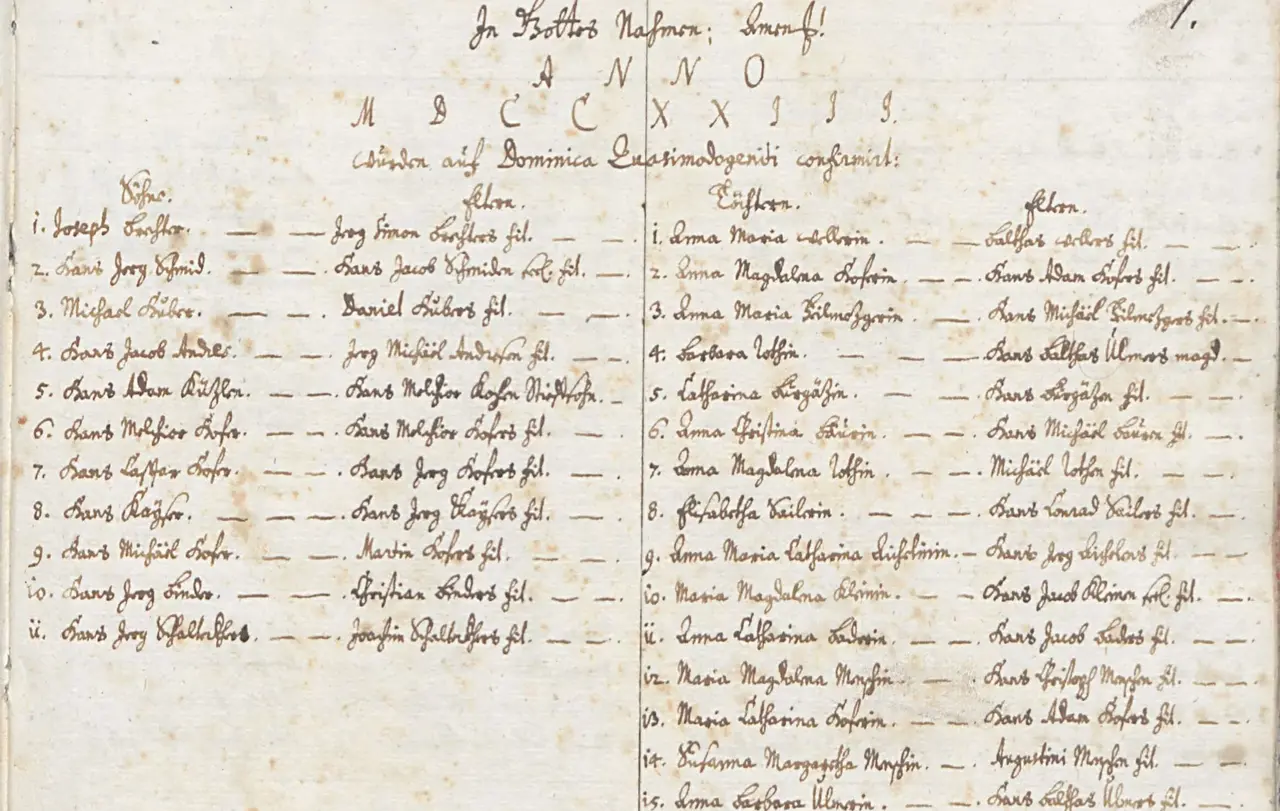 1.
In Gottes Nahmen; Amen!
ANNO
MDCCXXIII.
wurden auf Dominica Quasimodogeniti confirmirt:
Söhne. Eltern.
1. Joseph Brechter. — — Jerg Simon Brechters fil. — —
2. Hans Jerg Schmid. — — Hans Jacob Schmiden seel. fil. — —
3. Michael Huber. — — Daniel Hubers fil. — —
4. Hans Jacob Andres. — — Jerg Michäel Andresen fil. — —
5. Hans Adam — — Hans Melchior Stiefsohn. —
6. Hans Melchior Hofer. — — Hans Melchior Hofers fil. — —
7. Hans Caspar Hofer. — — Hans Jerg Hofers fil. — —
8. Hans Kayser. — — — Hans Jerg Kaysers fil. — —
9. Hans Michäel Hofer. — — Martin Hofers fil. — — —
10. Hans Jerg Binder. — — Christian Binders fil. — —
11. Hans Jerg — — Joachim fil. — —
Töchtern. Eltern.
1. Anna Maria Wellerin. — — Balthas Wellers fil. — — —
2. Anna Magdalena Hoferin. — — Hans Adam Hofers fil. — —
3. Anna Maria — Hans Michäel fil. —
4. Barbara Rothin. — — — Hans Balthas Ulmers magd. —
5. Catharina — — Hans fil. — —
6. Anna Christina Baurin. — — Hans Michäel Bauren fil. — —
7. Anna Magdalena Rothin. — — Michäel Rothen fil. — —
8. Elisabetha Sailerin. — — — Hans Conrad Sailers fil. — —
9. Anna Maria Catharina — Hans Jerg fil. — —
10. Maria Magdalena Kleinin. — — Hans Jacob Kleinen seel. fil. — —
11. Anna Catharina Baderin. — — Hans Jacob Baders fil. — —
12. Maria Magdalena — — Hans Christoph fil. — —
13. Maria Catharina Hoferin. — — Hans Adam Hofers fil. — —
14. Susanna Margaretha — Augustini fil. — —
15. Anna Barbara Ulmerin. — Hans Balthas Ulmers fil. —